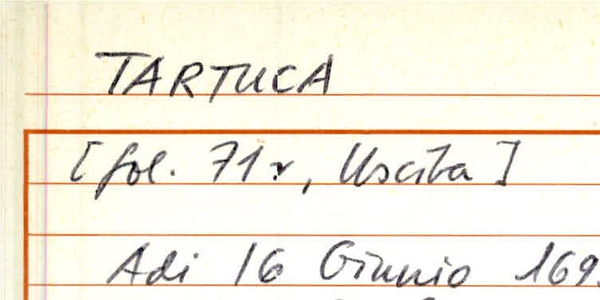 TARTUCA
[fol. 71r, Uscita]
Adi 16 Giunio 169